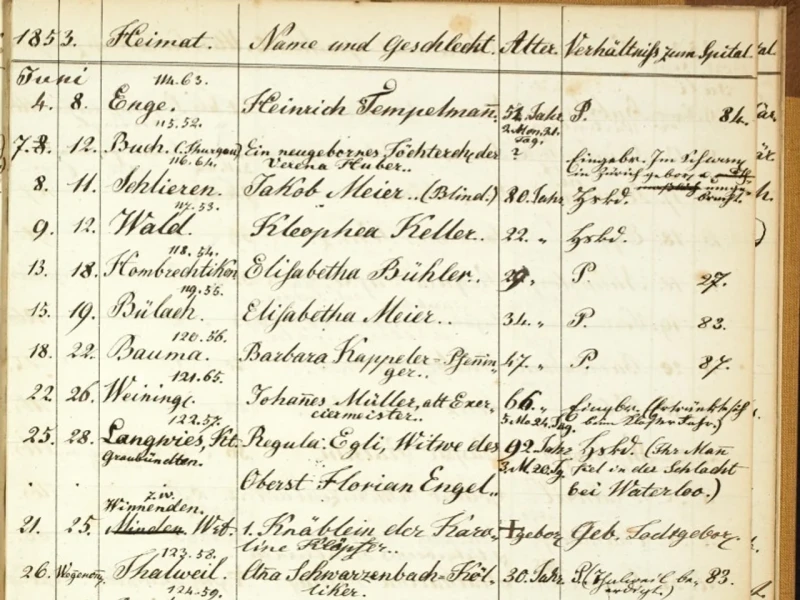 1853. Heimat. Name und Geschlecht. Alter. Verhältniß zum Spital.
Juni 114.63.
4. 8. Enge. Heinrich Tempelmañ. 51. Jahr. P. 84.
115.52. 2. Mon. 21. Tag.
7. 8. 12. Buch. (Thurgau) Ein neugebornes Töchterch. der ? Eingebr. Im Schwang
116.64. Verena Huber.. in Zürich geboren
8. 11. Schlieren. Jakob Meier.. (Blind.) 80. Jahr. Hskd.
117.53.
9. 12. Wald. Kleophea Keller.. 22. " Hskd.
118.54.
13. 18. Hombrechtikon Elisabetha Bühler.. 29. " P. 27.
119.55.
15. 19. Bülach. Elisabetha Meier.. 34. " P. 83.
120.56.
18. 22. Bauma. Barbara Kappeler=Pfeñin= 47. " P. 87.
121.65. ger..
22. 26. Weining. Johañes Müller, alt Exer= 66. " Eingebr. (Ertränkte sich
122.57. ciermeister.. 5. Mo. 24. Tag. beim Jahr.)
25. 28. Langwies, Kt. Regula Egli, Witwe des 92. Jahr Hskd. (Ihr Mañ
Graubündten. 3. M. 20. Tg. fiel in der Schlacht
Oberst Florian Engel.. bei Waterloo.)
z. W.
Winnenden.
21. 25. Minden. Wrt. 1. Knäblein der Karo= † gebor. Geb. Todtgebor.
123.58. line Klöpfer..
26. Thalweil. Aña Schwarzenbach=Köl= 30. Jahr. P. (Thalweil be= 83.
124.59. liker. erdigt.)